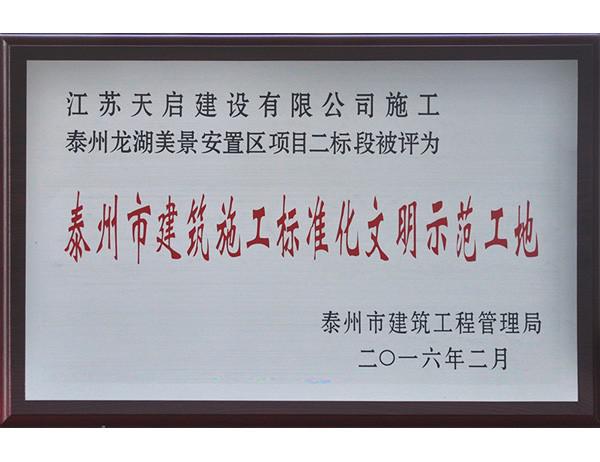 江苏天启建设有限公司施工
泰州龙湖美景安置区项目二标段被评为
泰州市建筑施工标准化文明示范工地
泰州市建筑工程管理局
二〇一六年二月